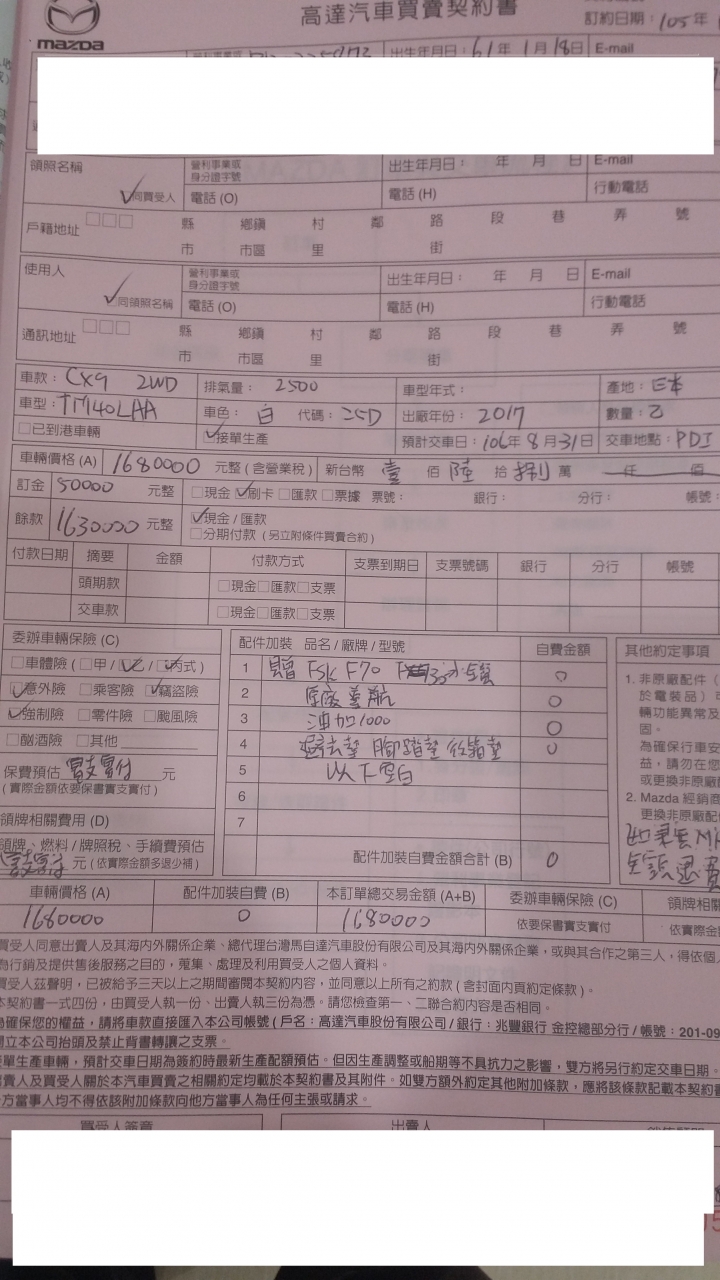 mazda
高達汽車買賣契約書
訂約日期：105年
出生年月日：61年 1月18日 E-mail
領照名稱 ✓同買受人 營利事業或身分證字號 出生年月日： 年 月 日 E-mail
電話(O) 電話(H) 行動電話
戶籍地址 □□□ 縣 鄉鎮 村 鄰 路 段 巷 弄 號
市 市區 里 街
使用人 ✓同領照名稱 營利事業或身分證字號 出生年月日： 年 月 日 E-mail
電話(O) 電話(H) 行動電話
通訊地址 □□□ 縣 鄉鎮 村 鄰 路 段 巷 弄 號
市 市區 里 街
車款：CX9 2WD 排氣量：2500 車型年式： 產地：日本
車型：TM40LAA 車色：白 代碼：25D 出廠年份：2017 數量：乙
□已到港車輛 ✓接單生產 預計交車日：106年8月31日 交車地點：PDI
車輛價格(A) 1680000 元整(含營業稅) 新台幣 壹 佰 陸 拾 捌 萬 仟 佰
訂金 50000 元整 □現金 ✓刷卡 □匯款 □票據 票號： 銀行： 分行： 帳號：
餘款 1630000 元整 ✓現金/匯款
□分期付款(另立附條件買賣合約)
付款日期 摘要 金額 付款方式 支票到期日 支票號碼 銀行 分行 帳號
頭期款 □現金□匯款□支票
交車款 □現金□匯款□支票
委辦車輛保險(C) 配件加裝 品名/廠牌/型號 自費金額 其他約定事項
□車體險(□甲/✓乙/✓丙式)
✓意外險 □乘客險 ✓竊盜險
✓強制險 □零件險 □颱風險
□酗酒險 □其他
保費預估 實支實付 元
(實際金額依要保書實支實付)
1 贈 FSK F70 冰鎮 0
2 原廠導航 0
3 油加1000 0
4 避去墊 腳踏墊 後箱墊 0
5 以下空白
6
7
配件加裝自費金額合計(B) 0
1. 非原廠配件（
於電裝品）可
輛功能異常及
固。
為確保行車安
益，請勿在您
或更換非原廠
2. Mazda 經銷商
更換非原廠配
領牌相關費用(D)
領牌、燃料/牌照稅、手續費預估
實支實付 元(依實際金額多退少補)
車輛價格(A) 配件加裝自費(B) 本訂單總交易金額(A+B) 委辦車輛保險(C) 領牌相關
1680000 0 1680000 依要保書實支實付 依實際金
買受人同意出賣人及其海內外關係企業、總代理台灣馬自達汽車股份有限公司及其海內外關係企業，或與其合作之第三人，得依個人
為行銷及提供售後服務之目的，蒐集、處理及利用買受人之個人資料。
買受人茲聲明，已被給予三天以上之期間審閱本契約內容，並同意以上所有之約款(含封面內頁約定條款)。
本契約書一式四份，由買受人執一份、出賣人執三份為憑。請您檢查第一、二聯合約內容是否相同。
為確保您的權益，請將車款直接匯入本公司帳號(戶名：高達汽車股份有限公司/銀行：兆豐銀行 金控總部分行/帳號：201-09
開立本公司抬頭及禁止背書轉讓之支票。
接單生產車輛，預計交車日期為簽約時最新生產配額預估。但因生產調整或船期等不具抗力之影響，雙方將另行約定交車日期。
出賣人及買受人關於本汽車買賣之相關約定均載於本契約書及其附件。如雙方額外約定其他附加條款，應將該條款記載本契約書
方當事人均不得依該附加條款向他方當事人為任何主張或請求。
買受人簽章 出賣人